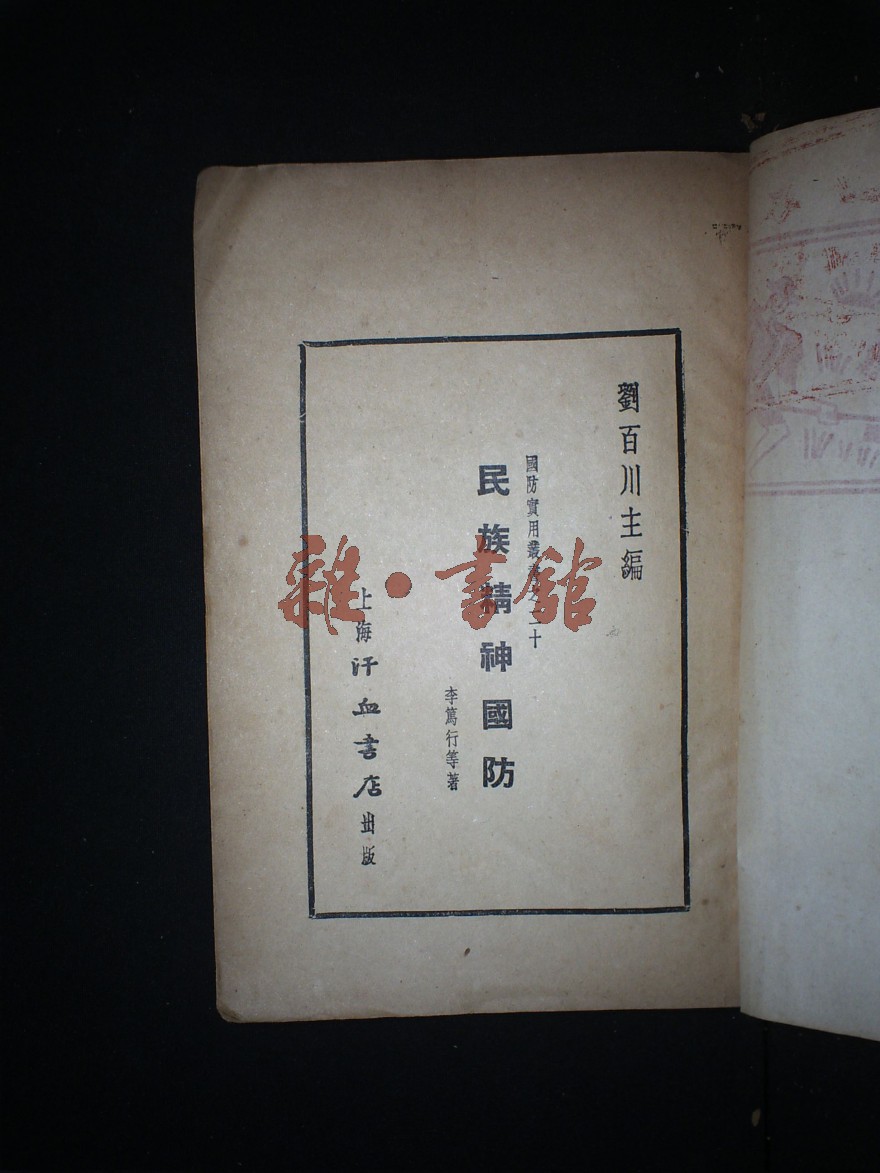 劉百川主編
國防實用叢書之二十
民族精神國防
李篤行等著
上海汗血書店出版
雜·書館